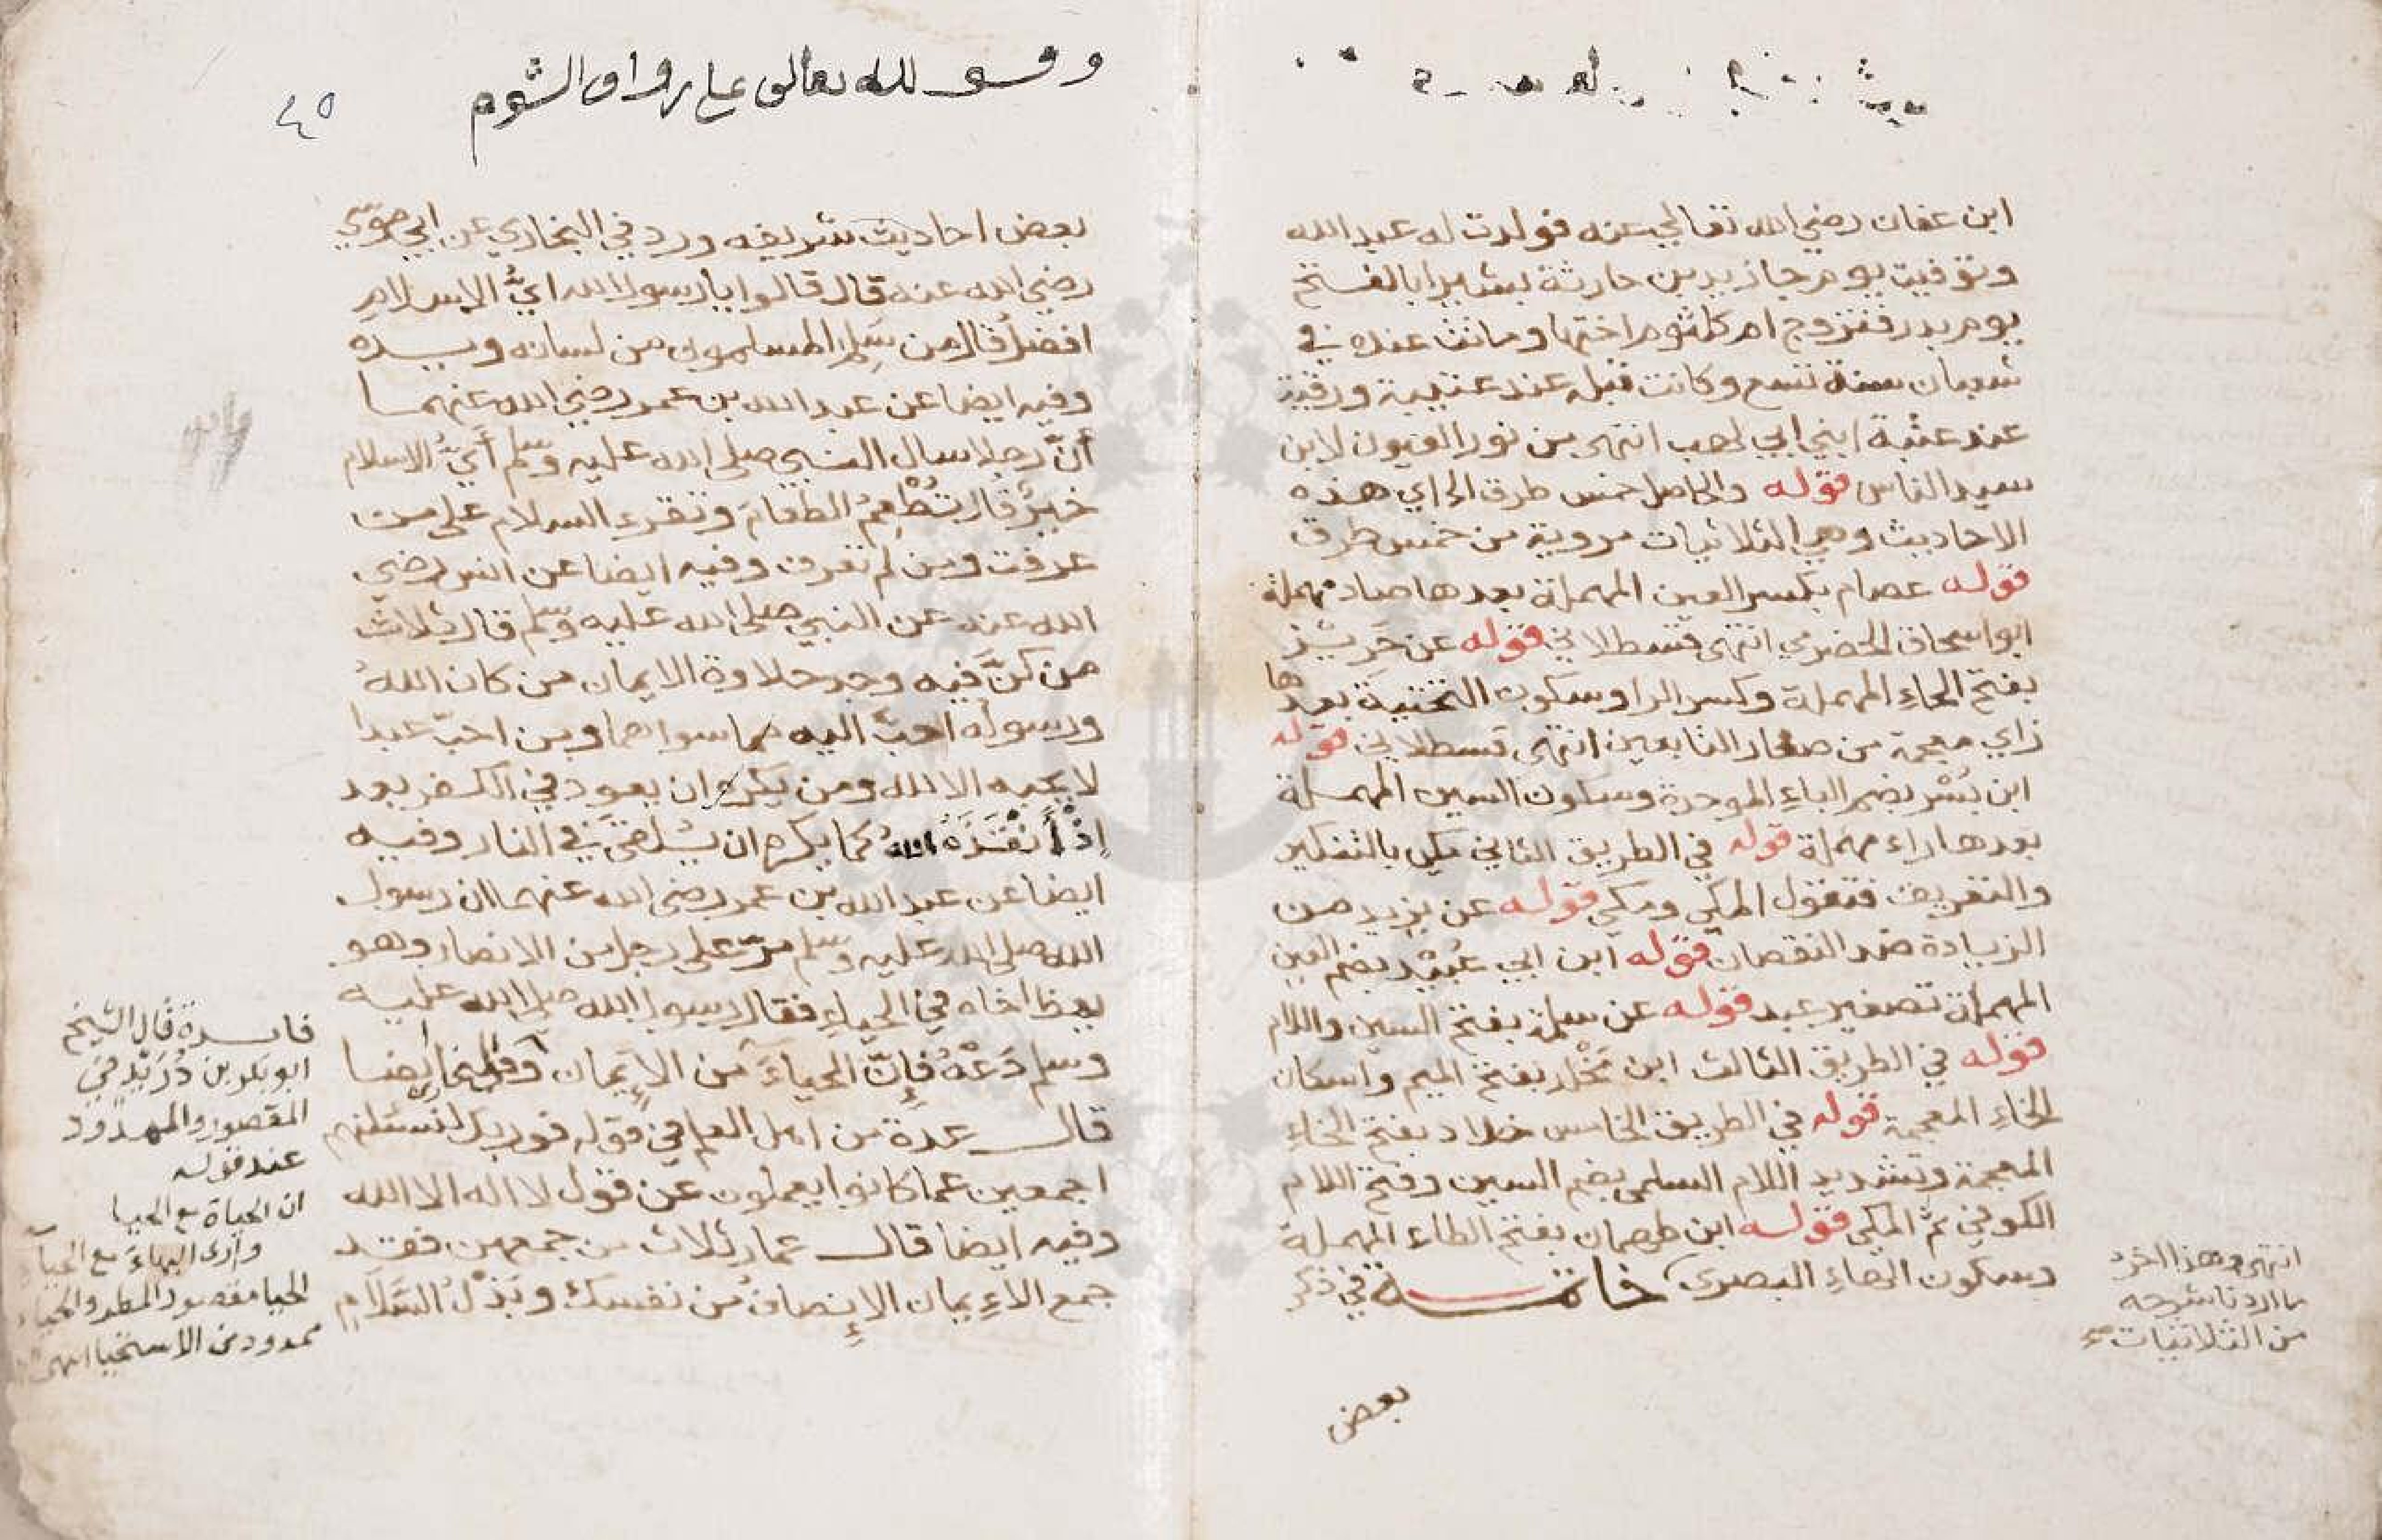 ابن عفان رضي الله تعالى عنه فولدت له عبد الله
وتوفيت يوم جاء زيد بن حارثة بشيرا بالفتح
يوم بدر فتزوج ام كلثوم اختها وماتت عنده في
شعبان سنة تسع وكانت قبله عند عتيبة ورقية
عند عتبة ابني ابي لهب انتهى من نور العيون لابن
سيد الناس قوله والحاصل خمس طرق الخ اي هذه
الاحاديث وهي الثلاثيات مروية من خمس طرق
قوله عصام بكسر العين المهملة بعدها صاد مهملة
ابو اسحاق الحضرمي انتهى قسطلاني قوله عن حَرِيز
بفتح الحاء المهملة وكسر الرا وسكون التحتية بعدها
زاي معجمة من صغار التابعين انتهى قسطلاني قوله
ابن بُسْر بضم الباء الموحدة وسكون السين المهملة
بعدها راء مهملة قوله في الطريق الثاني مكي بالتنكير
والتعريف فتقول المكي ومكي قوله عن يزيد من
الزيادة ضد النقصان قوله ابن ابي عُبَيْد بضم العين
المهملة تصغير عبد قوله عن سلمة بفتح السين واللام
قوله في الطريق الثالث ابن مَخْلد بفتح الميم واسكان
الخاء المعجمة قوله في الطريق الخامس خلاد بفتح الخاء
المعجمة وتشديد اللام السلمي بضم السين وفتح اللام
الكوفي ثم المكي قوله ابن طهمان بفتح الطاء المهملة
وسكون الهاء البصرى خاتمـة في ذكر
انتهى وهذا اخر
ما اردنا شرحه
من الثلاثيات
بعض
وقف لله تعالى على رواق الشوام
٤٥
بعض احاديث شريفه ورد في البخاري عن ابي موسى
رضي الله عنه قال قالوا يا رسول الله ايُّ الاسلامِ
افضلُ قال من سَلِمَ المسلمون من لسانه ويده
وفيه ايضا عن عبد الله بن عمر رضي الله عنهما
أنَّ رجلا سال النبي صلى الله عليه وسلم أيُّ الاسلام
خيرٌ قال تُطْعِمُ الطعَامَ وتقرء السلام على من
عرفت ومن لم تعرف وفيه ايضا عن انس رضي
الله عنه عن النبي صلى الله عليه وسلم قال ثلاث
من كنَّ فيه وجد حلاوة الايمان من كان اللهُ
ورسولُه احبَّ اليه مما سواهما ومن احبّ عبدا
لا يحبه الا لله ومن يكره ان يعود في الكفر بعد
اِذْ أَنْقَذَهُ اللهُ كما يكره ان يُلقى في النار وفيه
ايضا عن عبد الله بن عمر رضي الله عنهما ان رسول
الله صلى الله عليه وسلم مرّ على رجل من الانصار وهو
يعظ اخاه في الحياء فقال رسول الله صلى الله عليه
وسلم دَعْهُ فإِنّ الحياءَ من الإيمان وفي البخارى ايضا
قال عدة من اهل العلم في قوله فوربك لنسئلنهم
اجمعين عما كانوا يعملون عن قول لا اله الا الله
وفيه ايضا قال عمار ثلاث من جمعهن فقد
جمع الاِءيمان الإِنصافُ من نفسك وبَذْلُ السَّلَامِ
فائدة قال الشيخ
ابو بكر بن دُرَيْد في
المقصور والممدود
عند قوله
ان الحياة مع الحيا
وارى البهاءَ مع الحياءِ
الحيا مقصور المطر والحياء
ممدود من الاستحيا انتهى